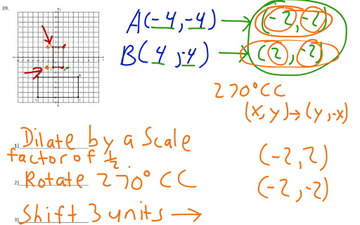 39.
A(-4,-4) → (-2,-2)
B(4,-4) → (2,-2)
270° CC
(x,y)→(y,-x)
1) Dilate by a Scale
factor of 1/2.
(-2,2)
2) Rotate 270° CC
(-2,-2)
3) Shift 3 units →